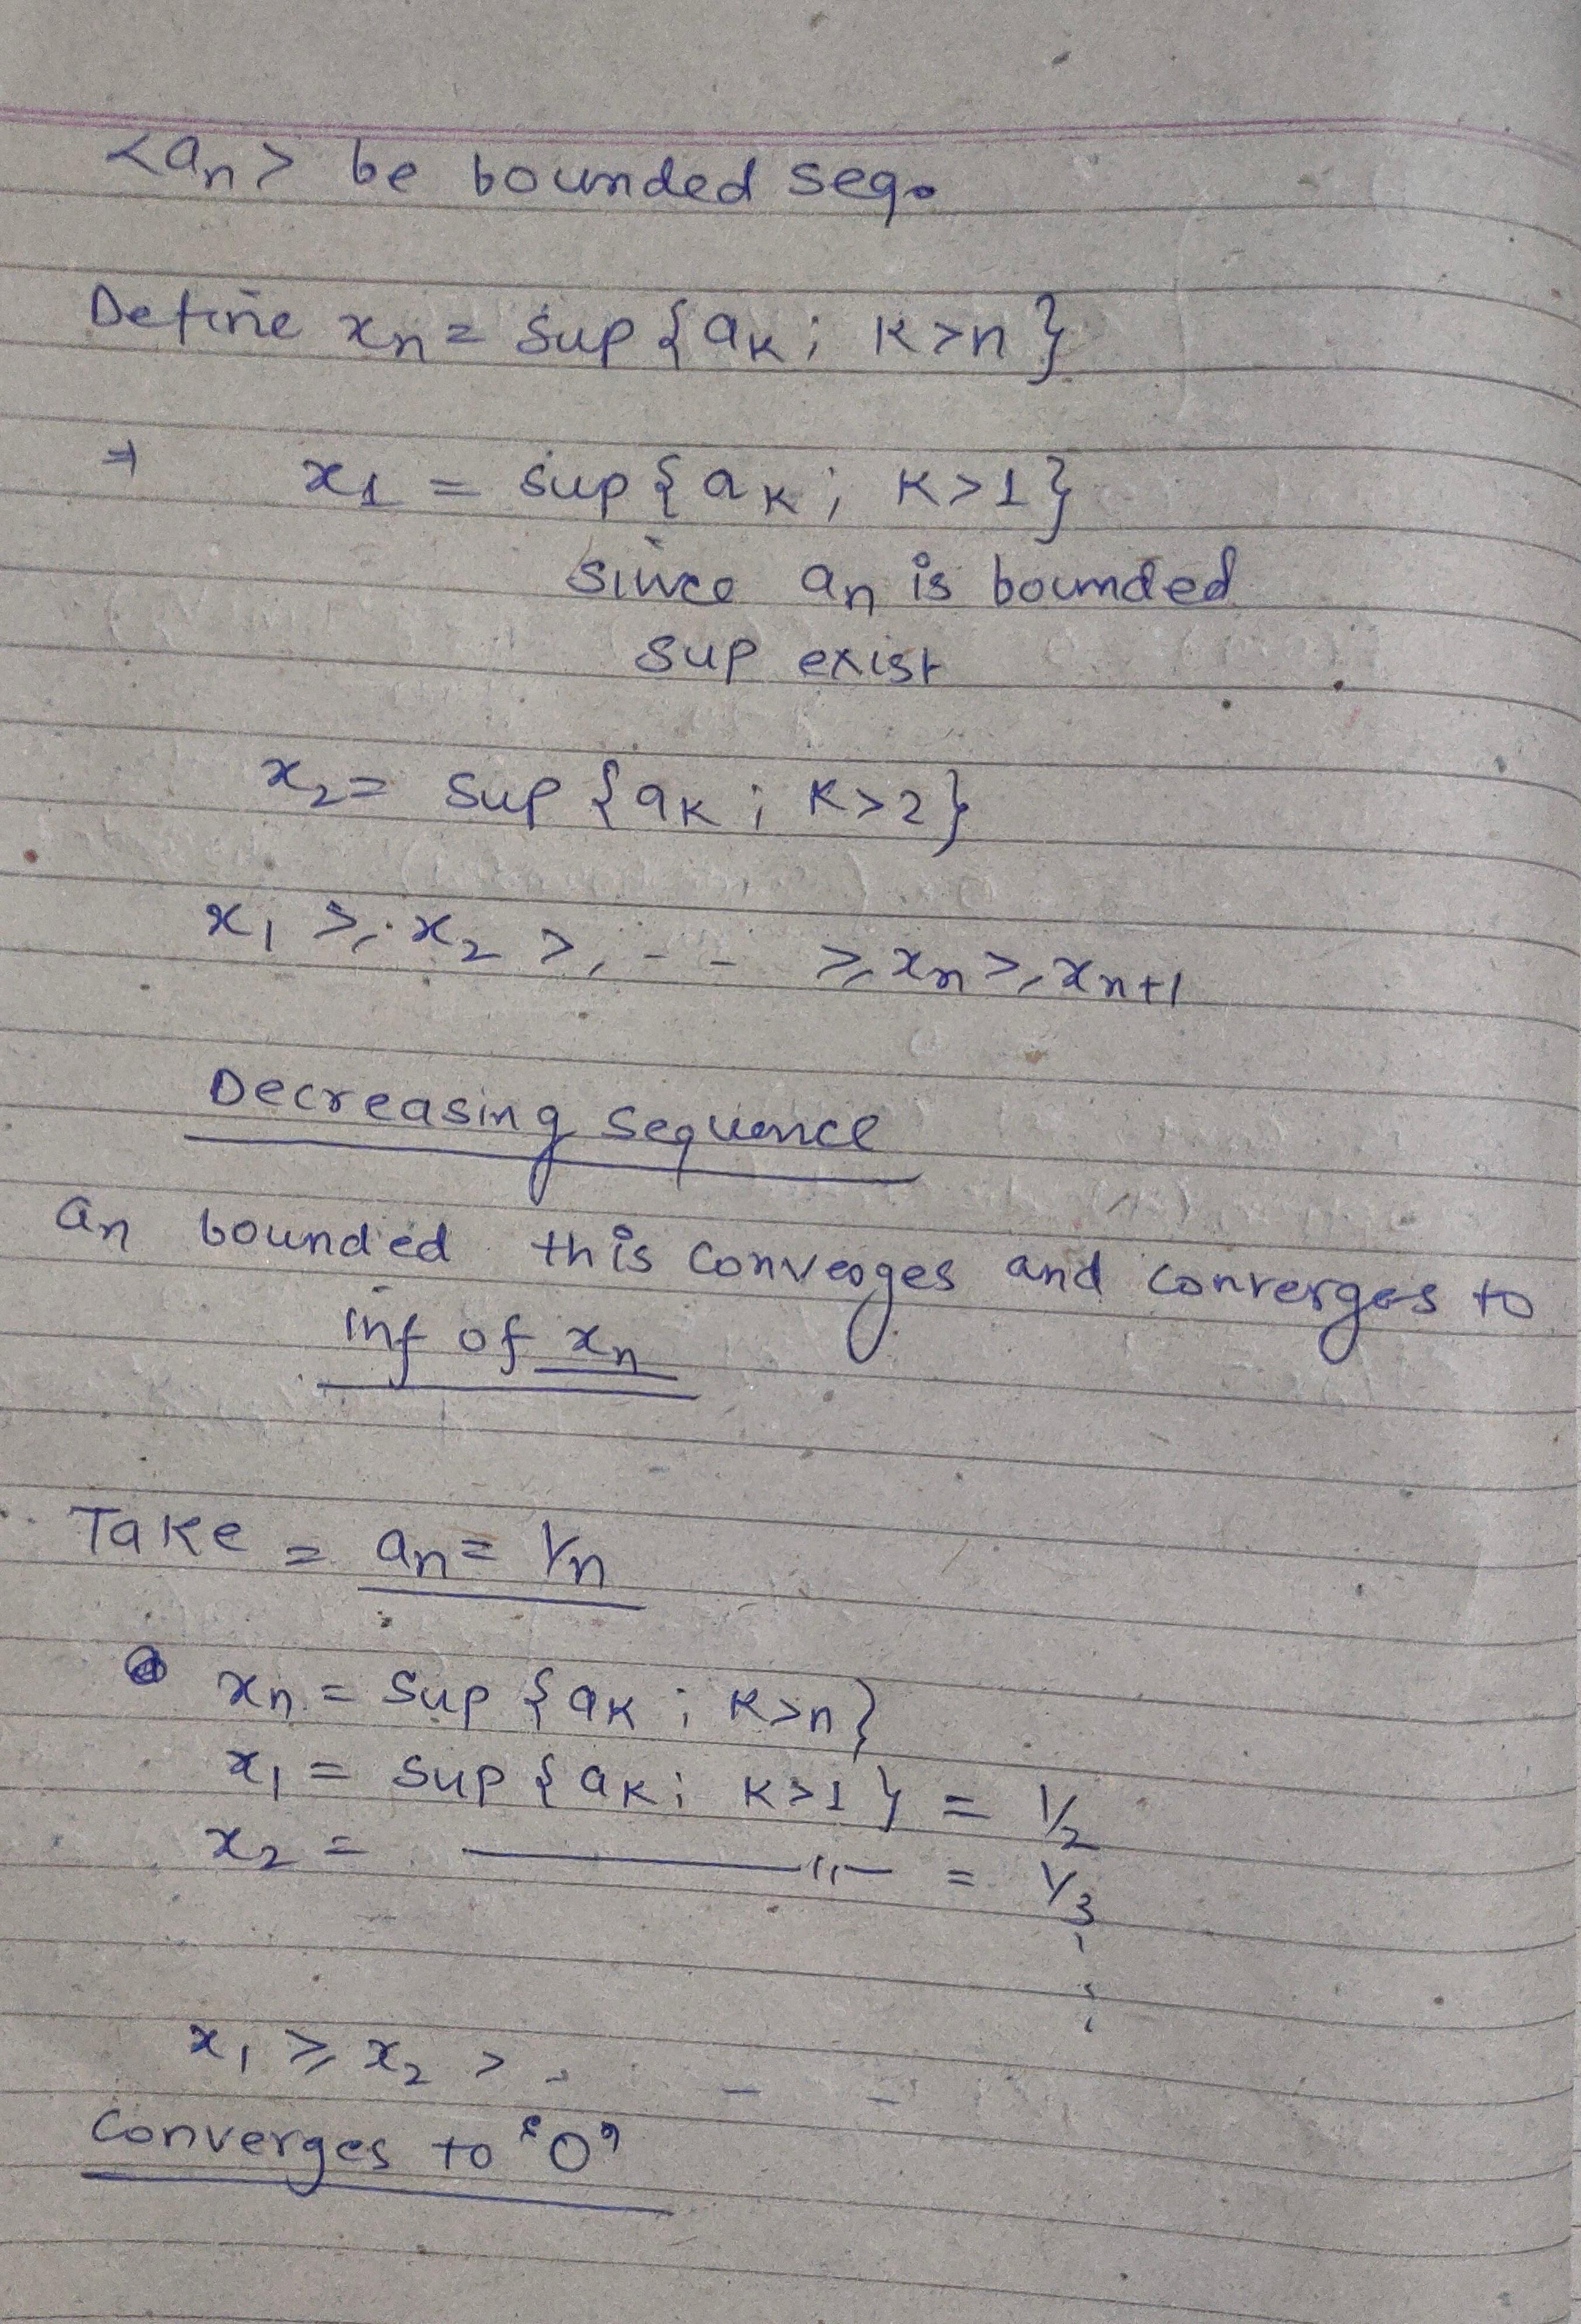 <an> be bounded seq.
Define xn = sup {ak ; k>n}
⇒ x1 = sup {ak ; k>1}
since an is bounded
sup exist
x2 = sup {ak ; k>2}
x1 ≥ x2 ≥ - - ≥ xn ≥ xn+1
Decreasing sequence
an bounded this converges and converges to
inf of xn
Take = an = 1/n
xn = sup {ak ; k>n}
x1 = sup {ak ; k>1} = 1/2
x2 = ———"— = 1/3
x1 ≥ x2 > - - -
converges to '0'